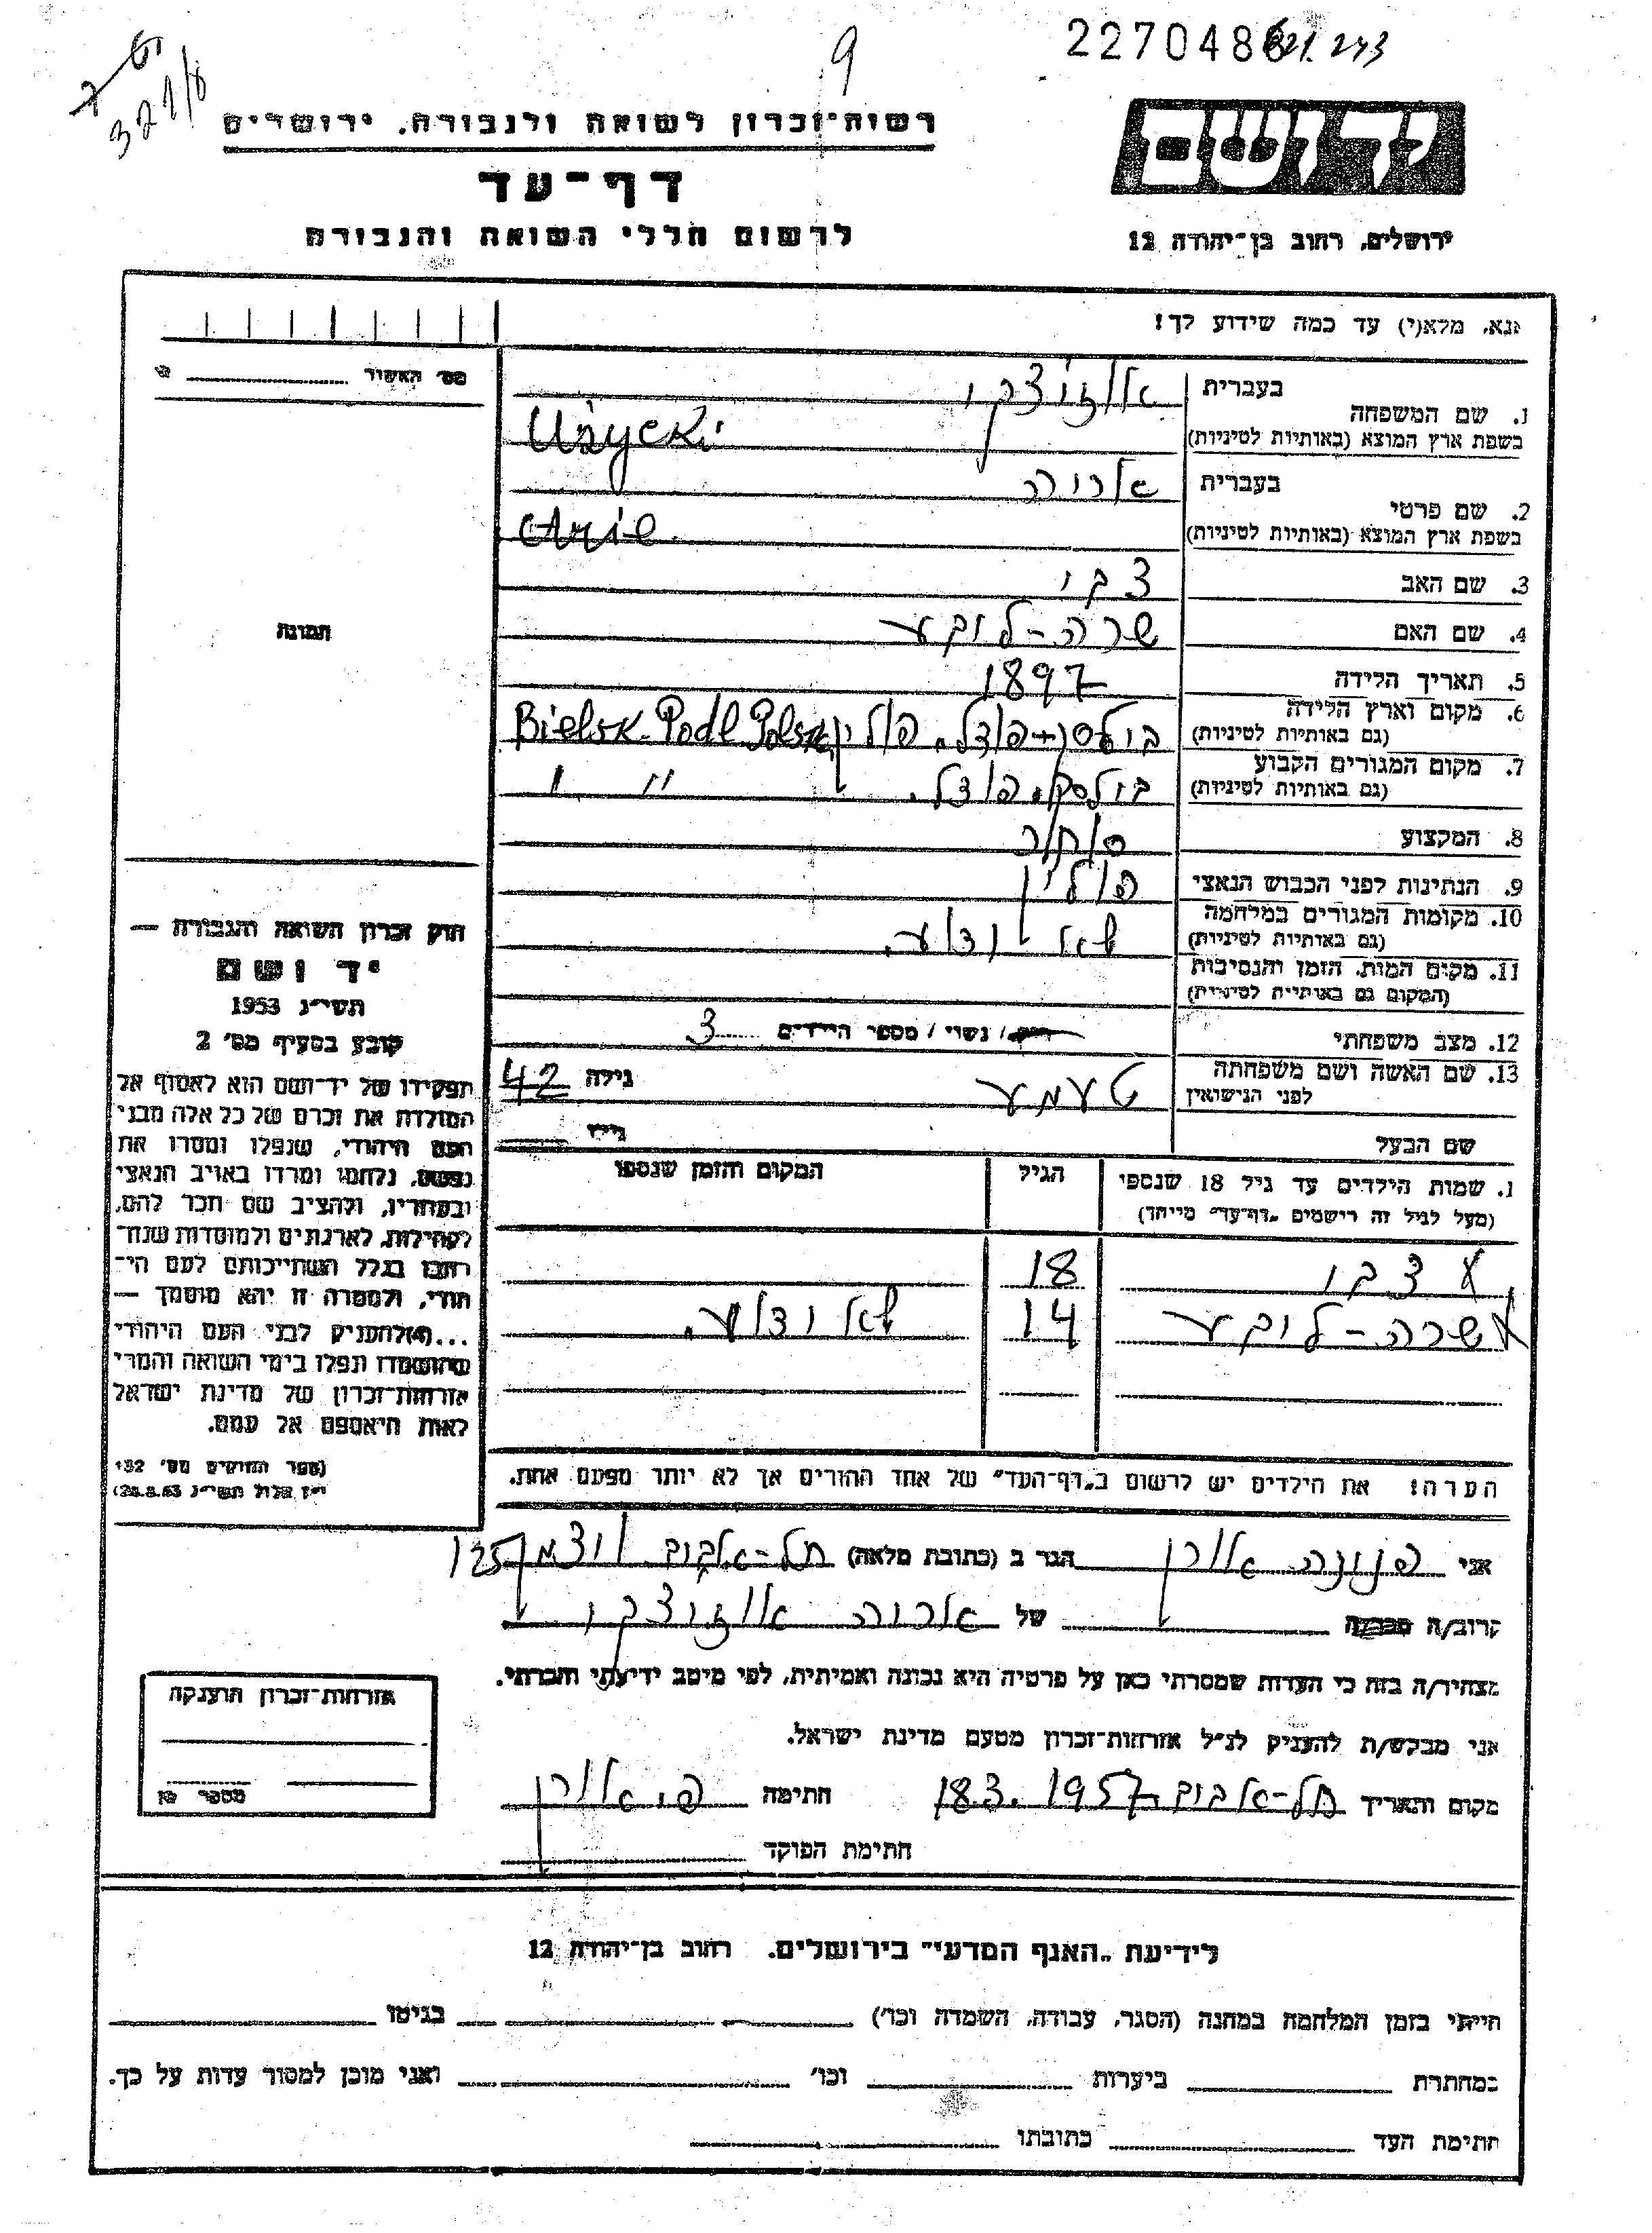 2270486
621.243
9
321/8
יד ושם
רשות־זכרון לשואה ולגבורה, ירושלים
דף־עד
לרשום חללי השואה והגבורה
ירושלים, רחוב בן־יהודה 12
אנא, מלא(י) עד כמה שידוע לך!
מס' האשור
בעברית אוז'יצקי
1. שם המשפחה
בשפת ארץ המוצא (באותיות לטיניות) Użycki
בעברית אריה
2. שם פרטי
בשפת ארץ המוצא (באותיות לטיניות) Arie
3. שם האב צבי
4. שם האם שרה-ליבע
5. תאריך הלידה 1897
6. מקום וארץ הלידה
(גם באותיות לטיניות) בילסק פודל. פולין Bielsk Podl Polska
7. מקום המגורים הקבוע
(גם באותיות לטיניות) בילסק. פודל. " "
8. המקצוע סוחר
9. הנתינות לפני הכבוש הנאצי פולין
10. מקומות המגורים במלחמה
(גם באותיות לטיניות) לא ידוע.
11. מקום המות, הזמן והנסיבות
(המקום גם באותיות לטיניות)
12. מצב משפחתי רווק / נשוי / מספר הילדים 3
13. שם האשה ושם משפחתה
לפני הנישואין טעמע גילה 42
שם הבעל גילו
תמונה
1. שמות הילדים עד גיל 18 שנספו
(מעל לגיל זה רישמים „דף־עד" מייחד)
הגיל
המקום והזמן שנספו
צבי 18
שרה-ליבע 14 לא ידוע.
הערה: את הילדים יש לרשום ב„דף־העד" של אחד ההורים אך לא יותר מפעם אחת.
חוק זכרון השואה והגבורה —
יד ושם
תשי"ג 1953
קובע בסעיף מס' 2
תפקידו של יד־ושם הוא לאסוף אל
המולדת את זכרם של כל אלה מבני
העם היהודי, שנפלו ומסרו את
נפשם, נלחמו ומרדו באויב הנאצי
ובעוזריו, ולהציב שם וזכר להם,
לקהילות, לארגונים ולמוסדות שנח־
רבו בגלל השתייכותם לעם היהו־
די, ולמטרה זו יהא מוסמך —
...(4) להעניק לבני העם היהודי
שהושמדו ונפלו בימי השואה והמרי
אזרחות־זכרון של מדינת ישראל
לאות היאספם אל עמם.
(ספר החוקים מס' 132
י"ז אלול תשי"ג 28.8.53)
אני פנינה אורן הגר ב (כתובת מלאה) תל-אביב ויצמן 125
קרוב/ה של אריה אוז'יצקי
מצהיר/ה בזה כי העדות שמסרתי כאן על פרטיה היא נכונה ואמיתית, לפי מיטב ידיעתי והכרתי.
אני מבקש/ת להעניק לנ"ל אזרחות־זכרון מטעם מדינת ישראל.
מקום ותאריך תל-אביב 18.3.1957 חתימה פ. אורן
חתימת הפוקד
אזרחות־זכרון הוענקה
מספר
לידיעת „האגף המדעי" בירושלים. רחוב בן־יהודה 12
הייתי בזמן המלחמה במחנה (הסגר, עבודה, השמדה וכו') בגיטו
במחתרת ביערות וכו' ואני מוכן למסור עדות על כך.
חתימת העד כתובתו